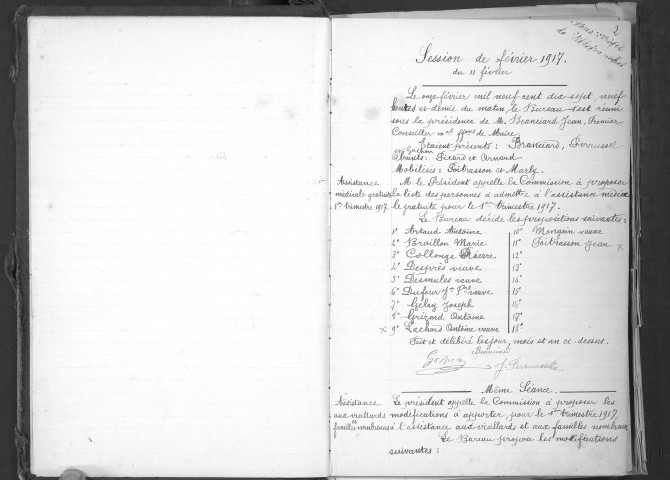 2
Session de février 1917.
du 11 février
Le onze février mil neuf cent dix sept, neuf
heures et demie du matin, le Bureau s'est réuni
sous la présidence de M. Branciard Jean, Premier
Conseiller mal ffons de Maire.
Etaient présents : Branciard, Perrussel
et Gachon
Absents : Picard et Arnaud
Mobilisés : Poitrasson et Marly.
Assistance
médicale gratuite
1er trimestre 1917.
M. le Président appelle la Commission à proposer
la liste des personnes à admettre à l'assistance médica
le gratuite pour le 1er trimestre 1917.
Le Bureau décide les propositions suivantes :
1° Artaud Antoine
2° Braillon Marie
3° Collonge Pierre
4° Desprès veuve
5° Desmules veuve
6° Dufour veuve
7° Gelay Joseph
8° Grizard Antoine
x 9° Lachard Antoine veuve
10° Mongoin veuve
11° Poitrasson Jean x
12°
13°
14°
15°
16°
17°
18°
Fait et délibéré les jour, mois et an ci-dessus.
Branciard
Gachon
J. Perrussel
Même Séance.
Assistance
aux vieillards
et
familles nombreuses
Le président appelle la Commission à proposer les
modifications à apporter, pour le 1er trimestre 1917,
à l'assistance aux vieillards et aux familles nombreux
Le Bureau propose les modifications
suivantes :